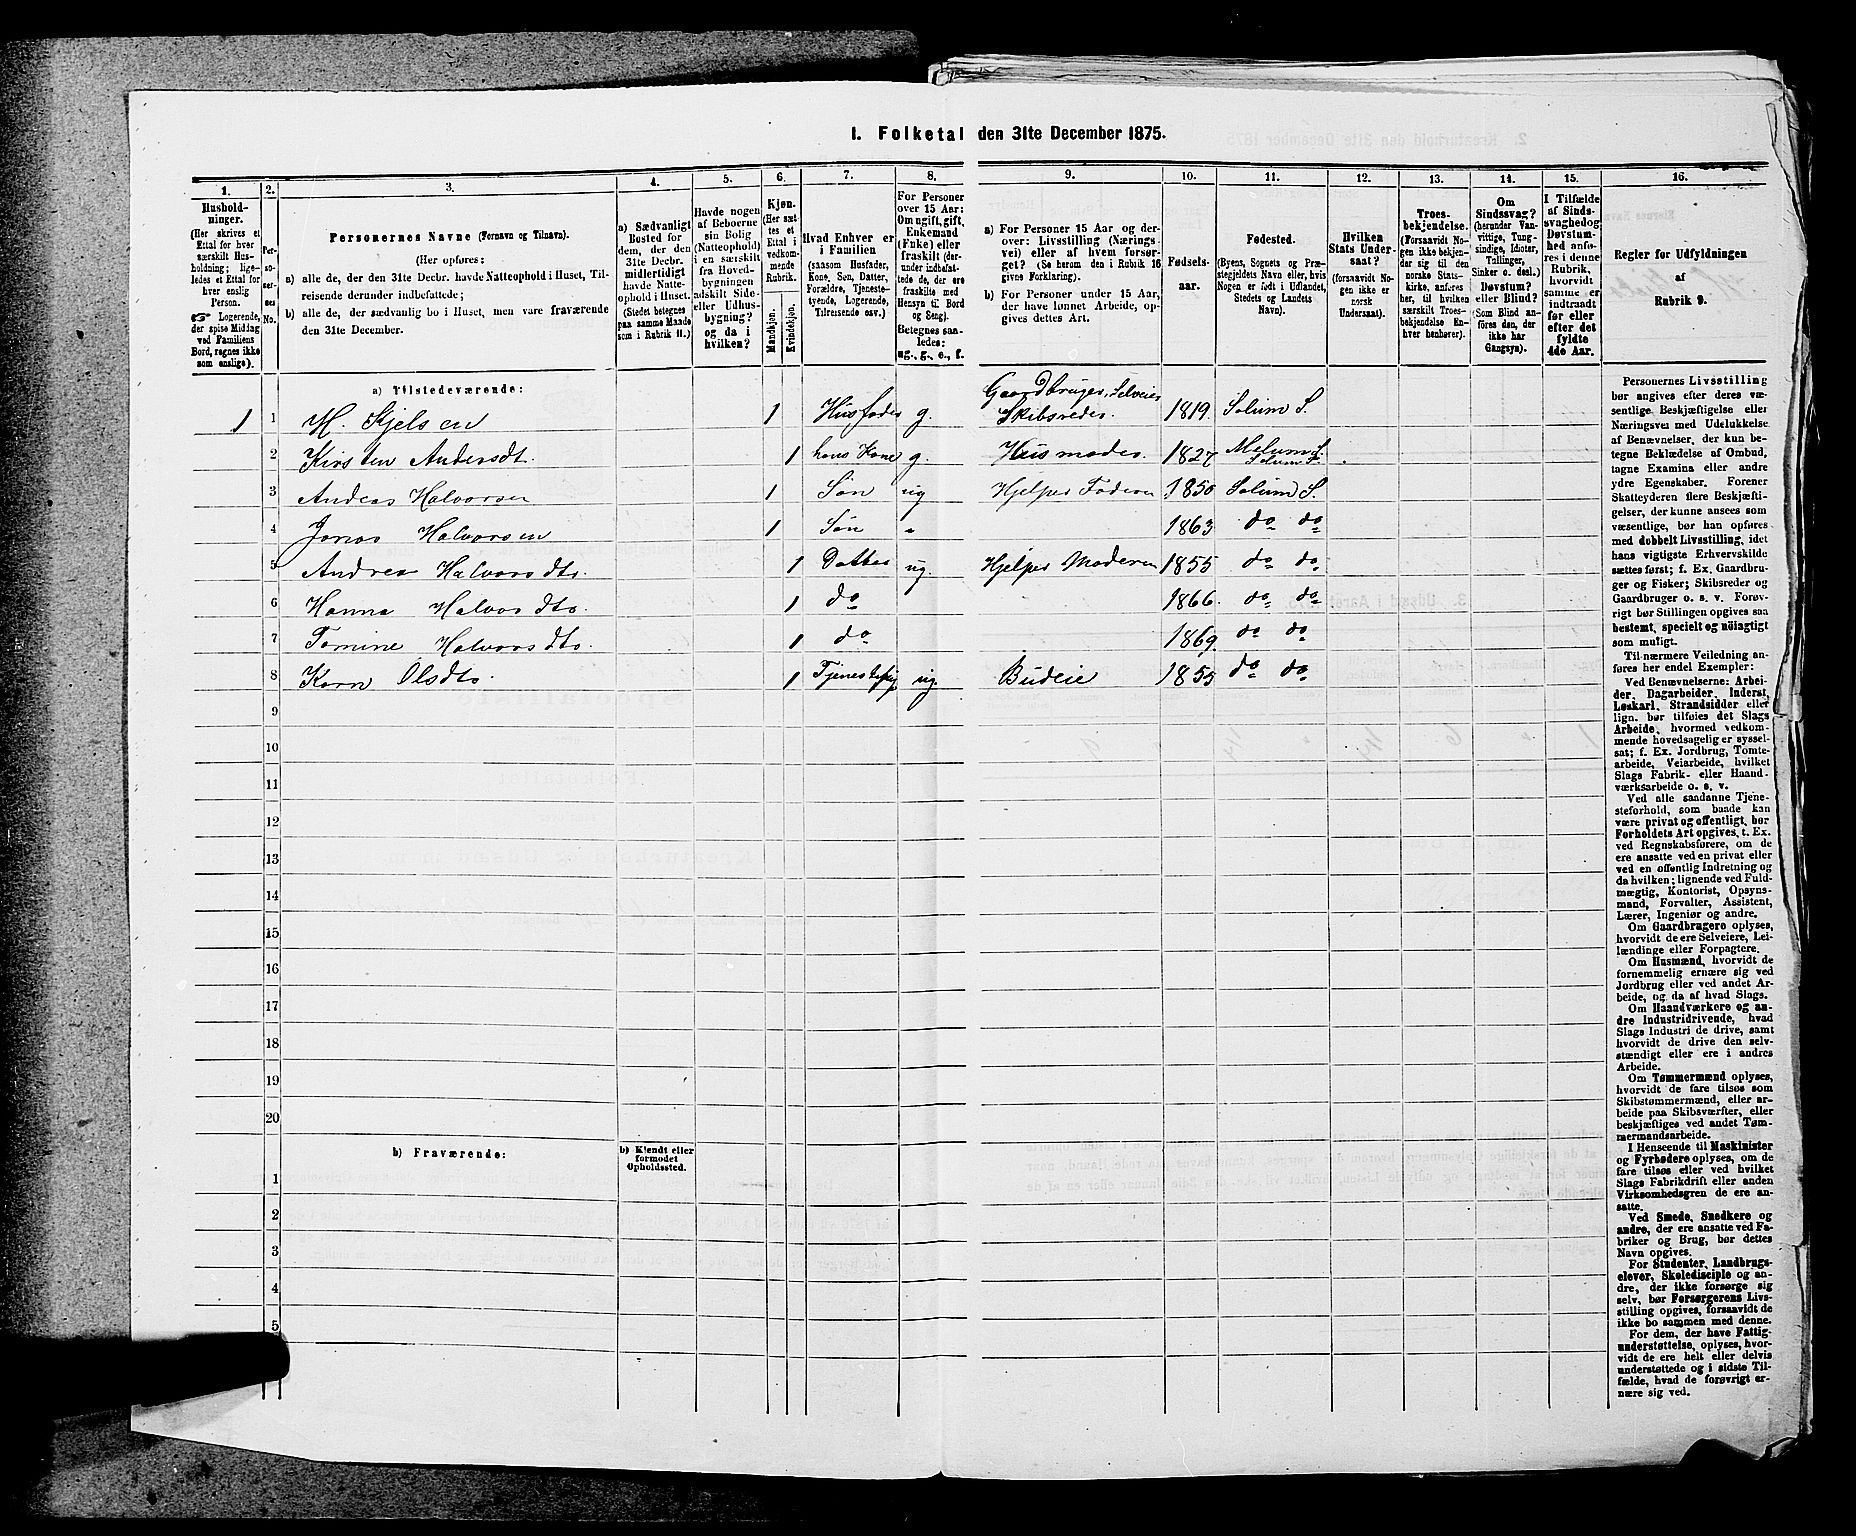 1. Folketal den 31te December 1875.
1. 2. 3. 4. 5. 6. 7. 8. 9. 10. 11. 12. 13. 14. 15. 16.
Husholdninger.
(Her skrives et
Ettal for hver
særskilt Husholdning;
ligeledes et Ettal for
hver enslig
Person.
☞ Logerende,
der spise Middag
ved Familiens
Bord, regnes ikke
som enslige).
Personernes No.
Personernes Navne (Fornavn og Tilnavn).
(Her opføres:
a) alle de, der den 31te Decbr. havde Natteophold i Huset, Tilreisende derunder indbefattede;
b) alle de, der sædvanlig bo i Huset, men vare fraværende
den 31te December.
a) Sædvanligt
Bosted for
dem, der den
31te Decbr.
midlertidigt
havde Natteophold i Huset.
(Stedet betegnes
paa samme Maade
som i Rubrik 11.)
Havde nogen
af Beboerne
sin Bolig
(Natteophold)
i en særskilt
fra Hovedbygningen
adskilt Side-
eller Udhusbygning?
og da i
hvilken?
Kjøn.
(Her sættes et
Ettal i
vedkommende
Rubrik.
Mandkjøn.
Kvindekjøn.
Hvad Enhver er
i Familien
(saasom Husfader,
Kone, Søn, Datter,
Forældre, Tjenestetyende, Logerende,
Tilreisende osv.)
For Personer
over 15 Aar:
Om ugift, gift,
Enkemand
(Enke) eller
fraskilt (derunder indbefattede de, der ere
fraskilte med
Hensyn til Bord
og Seng).
Betegnes saaledes:
ug., g., e., f.
a) For Personer 15 Aar og derover: Livsstilling (Næringsvei) eller af hvem forsørget? (Se herom den i Rubrik 16
givne Forklaring).
b) For Personer under 15 Aar,
der have lønnet Arbeide, opgives dettes Art.
Fødselsaar.
Fødested.
(Byens, Sognets og Præstegjeldets Navn eller, hvis
Nogen er født i Udlandet,
Stedets og Landets
Navn).
Hvilken
Stats Undersaat?
(forsaavidt Nogen ikke er
norsk
Undersaat).
Troesbekjendelse.
(Forsaavidt Nogen ikke bekjender sig til den
norske Statskirke, anføres
her, til hvilken
særskilt Troesbekjendelse Enhver henhører).
Om
Sindssvag?
(herunder Vanvittige, Tungsindige, Idioter,
Tullinger,
Sinker o. desl.).
Døvstum?
eller Blind?
(Som Blind anføres den, der
ikke har
Gangsyn).
I Tilfælde
af Sindssvaghed og
Døvstumhed anføres i denne
Rubrik,
hvorvidt
samme er
indtraadt
før eller
efter det
fyldte
4de Aar.
Regler for Udfyldningen
af
Rubrik 9.
a) Tilstedeværende:
1 1 H. Kjelsen 1 Husfader g. Gaardbruger, Selveier Skibsreder. 1819. Solum S.
2 Kirsten Andersdt. 1 hans Kone g. Husmoder. 1827 Melum S. Solum P.
3 Andeas Halvorsen 1 Søn ug Hjelper Faderen 1850 Solum S.
4 Jonas Halvorsen 1 Søn " 1863 do do
5 Andrea Halvorsdtr. 1 Datter ug. Hjelper Moderen 1855 do do
6 Hanna Halvorsdtr. 1 do 1866. do do
7 Tomine Halvorsdtr. 1 do 1869 do do
8 Karn Olsdtr. 1 Tjenestepig ug. Budeie 1855 do do
9
10
11
12
13
14
15
16
17
18
19
20
b) Fraværende:
b) Kjendt eller
formodet
Opholdssted.
1
2
3
4
5
Personernes Livsstilling
bør angives efter deres væsentlige Beskjæftigelse eller
Næringsvei med Udelukkelse
af Benævnelser, der kun betegne Beklædelse af Ombud,
tagne Examina eller andre
ydre Egenskaber. Forener
Skatteyderen flere Beskjæftigelser, der kunne ansees som
væsentlige, bør han opføres
med dobbelt Livsstilling, idet
hans vigtigste Erhvervskilde
sættes først; f. Ex. Gaardbruger og Fisker; Skibsreder og
Gaardbruger o. s. v. Forøvrigt bør Stillingen opgives saa
bestemt, specielt og nöiagtigt
som muligt.
Til nærmere Veiledning anføres her endel Exempler:
Ved Benævnelserne: Arbeider, Dagarbeider, Inderst,
Løskarl, Strandsidder eller
lign. bør tilføies det Slags
Arbeide, hvormed vedkommende hovedsagelig er sysselsat; f. Ex. Jordbrug, Tomtearbeide, Veiarbeide, hvilket
Slags Fabrik- eller Haandværksarbeide o. s. v.
Ved alle saadanne Tjenesteforhold, som baade kan
være privat og offentligt, bør
Forholdets Art opgives, t. Ex.
ved Regnskabsførere, om de
ere ansatte ved en privat eller
ved en offentlig Indretning og
da hvilken; lignende ved Fuldmægtig, Kontorist, Opsynsmand, Forvalter, Assistent,
Lærer, Ingeniør og andre.
Om Gaardbrugere oplyses,
hvorvidt de ere Selveiere, Leilændinge eller Forpagtere.
Om Husmænd, hvorvidt de
fornemmelig ernære sig ved
Jordbrug eller ved andet Arbeide, og da af hvad Slags.
Om Haandværkere og andre Industridrivende, hvad
Slags Industri de drive, samt
hvorvidt de drive den selvstændigt eller ere i andres
Arbeide.
Om Tømmermænd oplyses,
hvorvidt de fare tilsøs som
Skibstømmermænd, eller arbeide paa Skibsværfter, eller
beskjæftiges ved andet Tømmermandsarbeide.
I Henseende til Maskinister
og Fyrbødere oplyses, om de
fare tilsøs eller ved hvilket
Slags Fabrikdrift eller anden
Virksomhedsgren de ere ansatte.
Ved Smede, Snedkere og
andre, der ere ansatte ved Fabriker og Brug, bør dettes
Navn opgives.
For Studenter, Landbrugselever, Skoledisciple og andre, der ikke forsørge sig
selv, bør Forsørgerens Livsstilling opgives, forsaavidt de
ikke bo sammen med denne.
For dem, der have Fattigunderstøttelse, oplyses, hvorvidt de ere helt eller delvis
understøttede og i sidste Tilfælde, hvad de forøvrigt ernære sig ved.